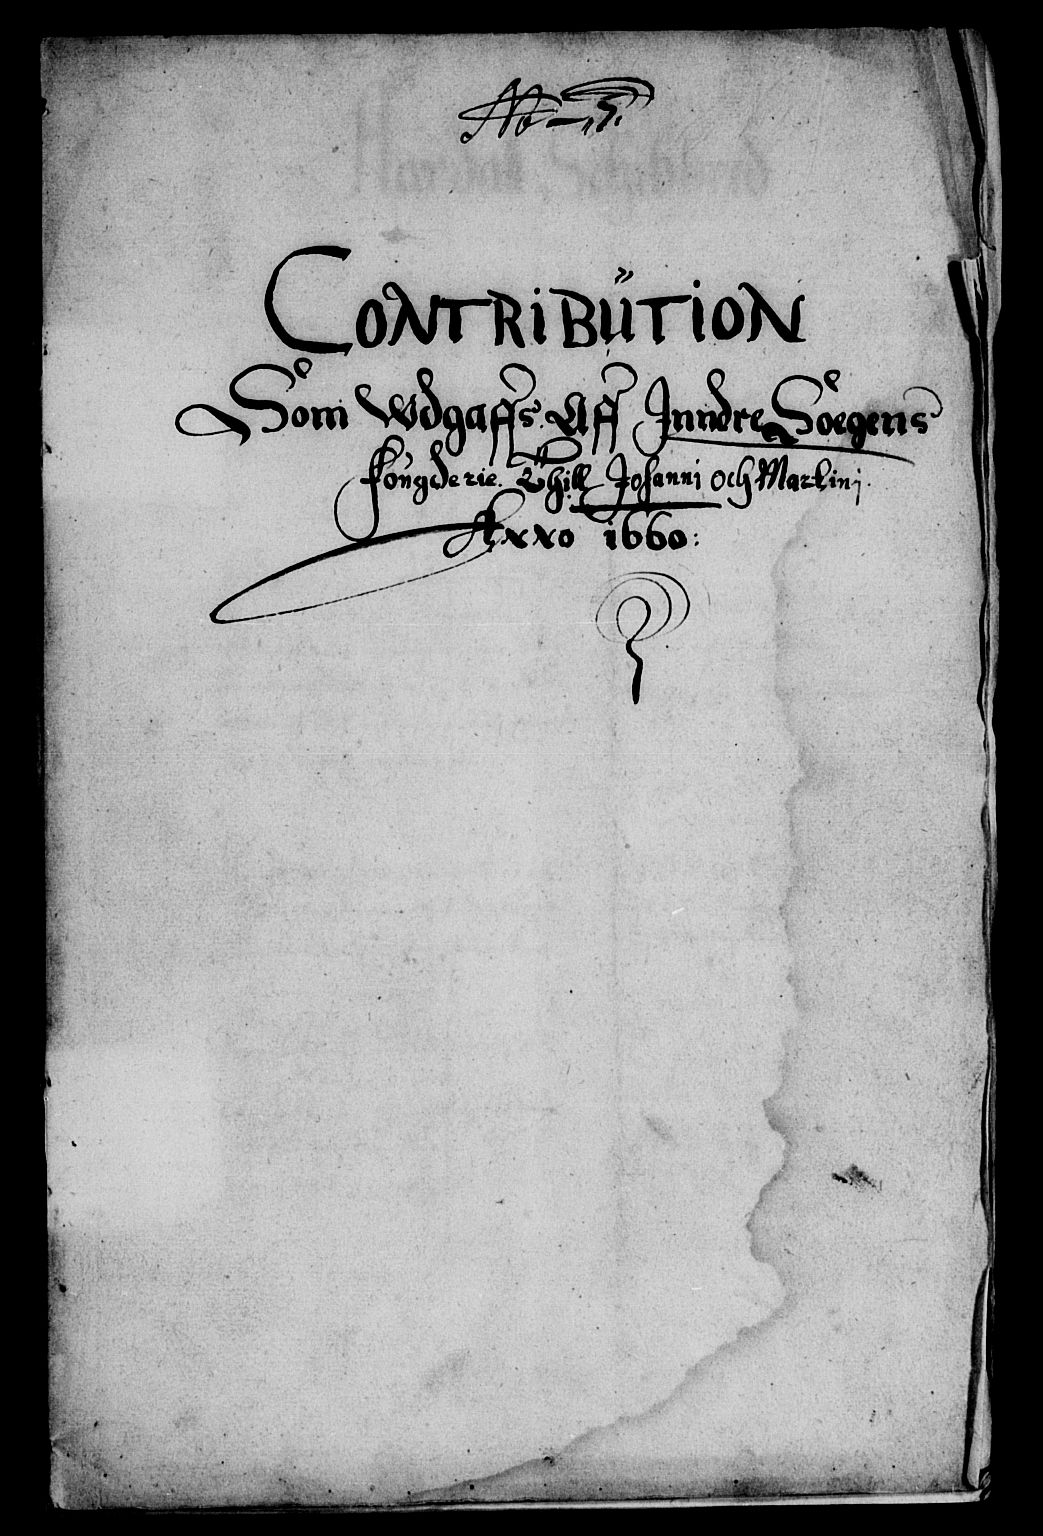 No = 7.
CONTRIBŬTION
Som Wdgaffs Aff Inndre Soegens
fougderie. Thill Johanni och Martini.
Anno 1660: